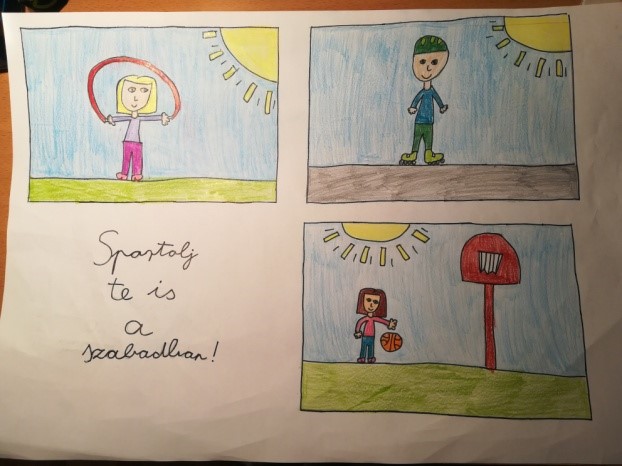 Sportolj
te is
a
szabadban!